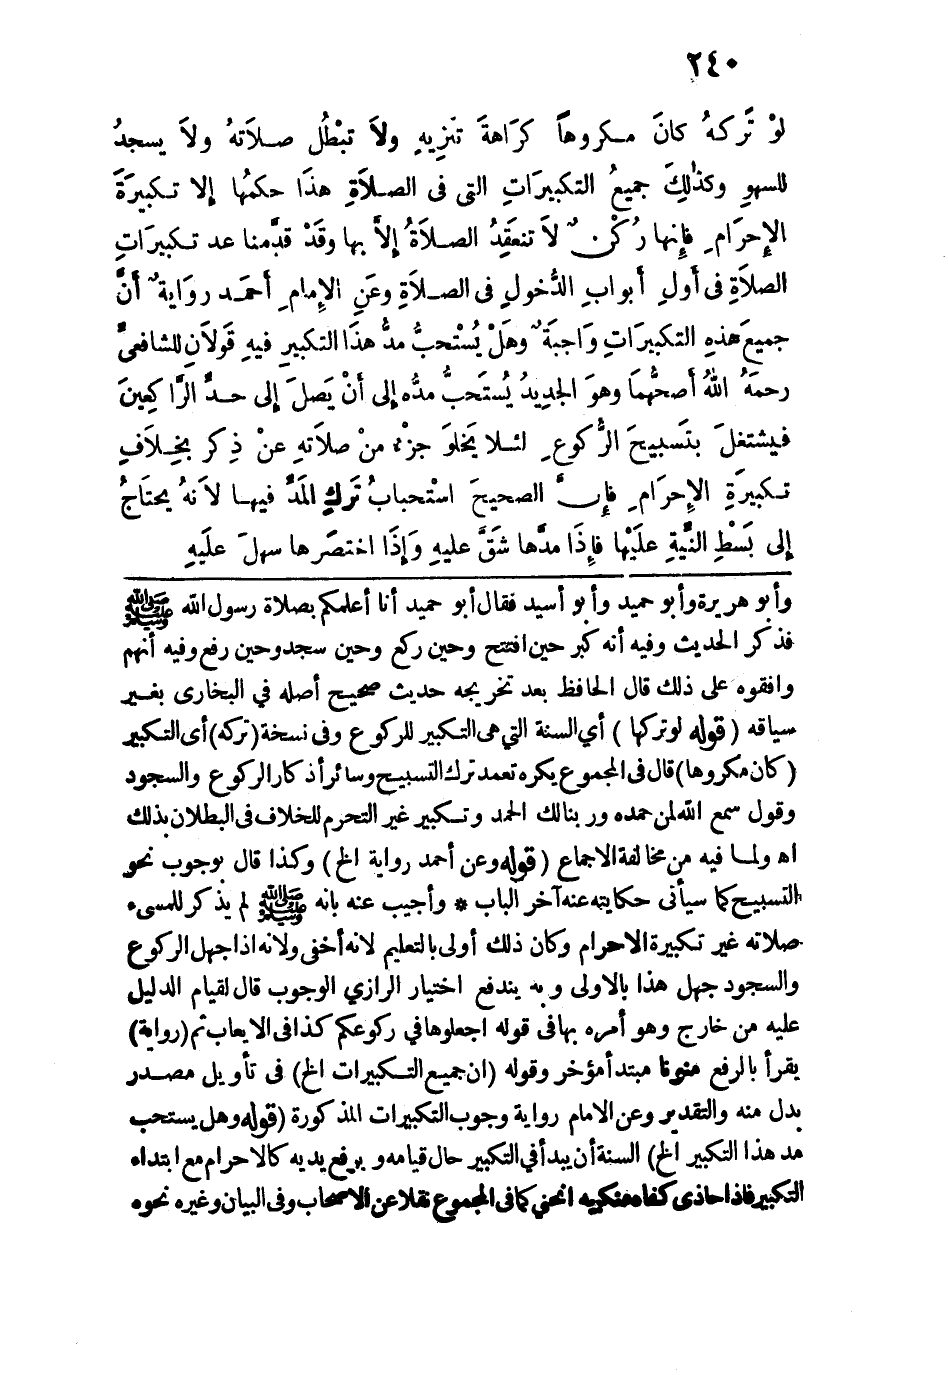 ٢٤٠
لَوْ تَرَكهُ كانَ مكروهاً كَرَاهةَ تنزيهٍ ولاَ تبْطُل صلاَتهُ ولاَ يسجدُ
للسهوِ وكذٰلِكَ جميعُ التكبيرَاتِ التى فى الصلاَةِ هذَا حكمُها إلا تكبيرَةَ
الإِحرَامِ فإنها رُكْنٌ لاَ تنعَقِدُ الصلاَةُ إلاَّ بها وقَدْ قدَّمنا عد تكبيرَاتِ
الصلاَةِ فى أولِ أبوابِ الدُّخولِ فى الصلاَةِ وعَنِ الإمامِ أحمَد روَايةٌ أنَّ
جميعَ هذهِ التكبيرَاتِ وَاجبَةٌ وهَلْ يُسْتحبُّ مدُّ هذَا التكبيرِ فيهِ قَولاَنِ للشافعىِّ
رحمَهُ اللهُ أصحُّهمَا وهوَ الجديدُ يُستَحبُّ مدُّه إلى أنْ يَصلَ إلى حدِّ الرَّاكِعينَ
فيشتغلَ بتَسبيحِ الرُّكوعِ لئلا يَخلوَ جزْء منْ صلاَتهِ عنْ ذِكر بخِلاَفِ
تكبيرَةِ الإِحرَامِ فإِنَّ الصحيحَ استْحبابُ تَركِ المَدِّ فيها لأنهُ يحتاجُ
إلى بَسْطِ النِّيَّةِ علَيْها فإذَا مدَّها شقَّ عليهِ وَإذَا اختصَرها سهلَ علَيهِ
وأبو هريرة وأبو حميد وأبو أسيد فقال أبو حميد أنا أعلمكم بصلاة رسول الله ﷺ
فذكر الحديث وفيه أنه كبر حين افتتح وحين ركع وحين سجد وحين رفع وفيه أنهم
وافقوه على ذلك قال الحافظ بعد تخريجه حديث صحيح أصله في البخارى بغير
سياقه (قوله لو تركها) أي السنة التي هى التكبير للركوع وفى نسخة (تركه) أى التكبير
(كان مكروها) قال فى المجموع يكره تعمد ترك التسبيح وسائر أذكار الركوع والسجود
وقول سمع الله لمن حمده وربنا لك الحمد وتكبير غير التحرم للخلاف فى البطلان بذلك
اه ولما فيه من مخالفة الاجماع (قوله وعن أحمد رواية الخ) وكذا قال بوجوب نحو
التسبيح كما سيأتى حكايته عنه آخر الباب * وأجيب عنه بانه ﷺ لم يذكر للمسىء
صلاته غير تكبيرة الاحرام وكان ذلك أولى بالتعليم لانه أخفى ولانه اذا جهل الركوع
والسجود جهل هذا بالاولى وبه يندفع اختيار الرازي الوجوب قال لقيام الدليل
عليه من خارج وهو أمره بها فى قوله اجعلوها في ركوعكم كذا فى الايعاب ثم (رواية)
يقرأ بالرفع منونا مبتدأ مؤخر وقوله (ان جميع التكبيرات الخ) فى تأويل مصدر
بدل منه والتقدير وعن الامام رواية وجوب التكبيرات المذكورة (قوله وهل يستحب
مد هذا التكبير الخ) السنة أن يبدأ في التكبير حال قيامه ويرفع يديه كالاحرام مع ابتداء
التكبير فاذا حاذى كفاه منكبيه انحنى كما فى المجموع نقلا عن الاصحاب وفى البيان وغيره نحوه